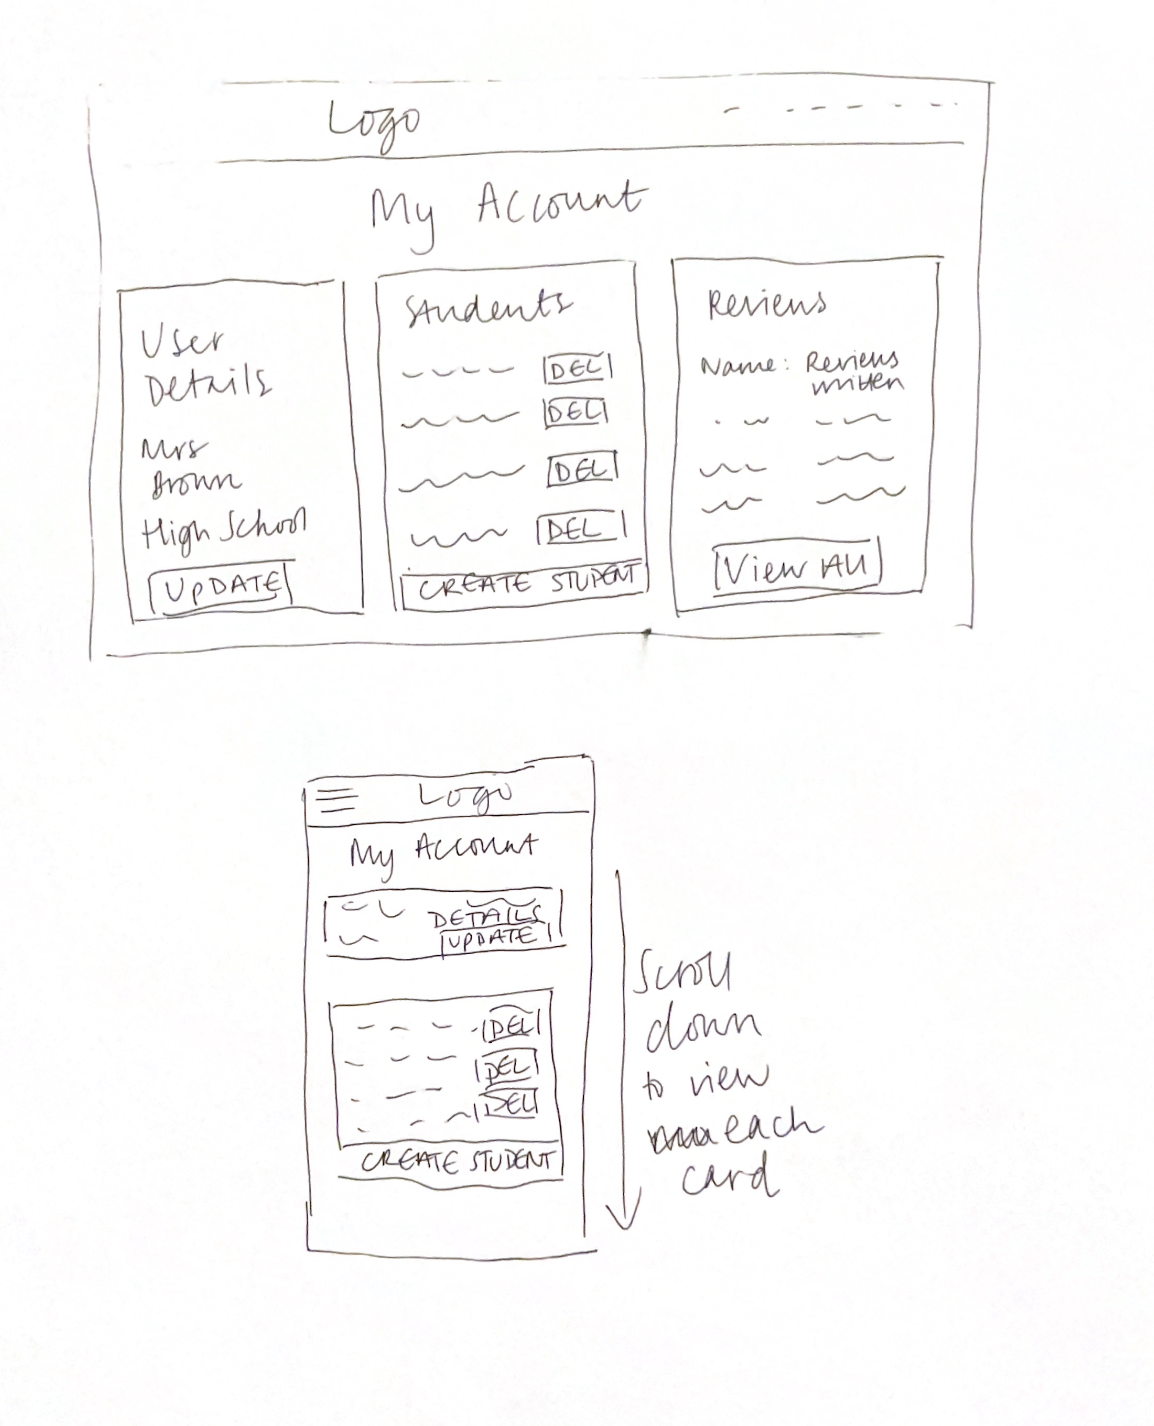 Logo
My Account
User
Details
Mrs
Brown
High School
UPDATE
Students
DEL
DEL
DEL
DEL
CREATE STUDENT
Reviews
Name: Reviews
written
View All
Logo
My Account
DETAILS
UPDATE
DEL
DEL
DEL
CREATE STUDENT
Scroll
down
to view
each
card